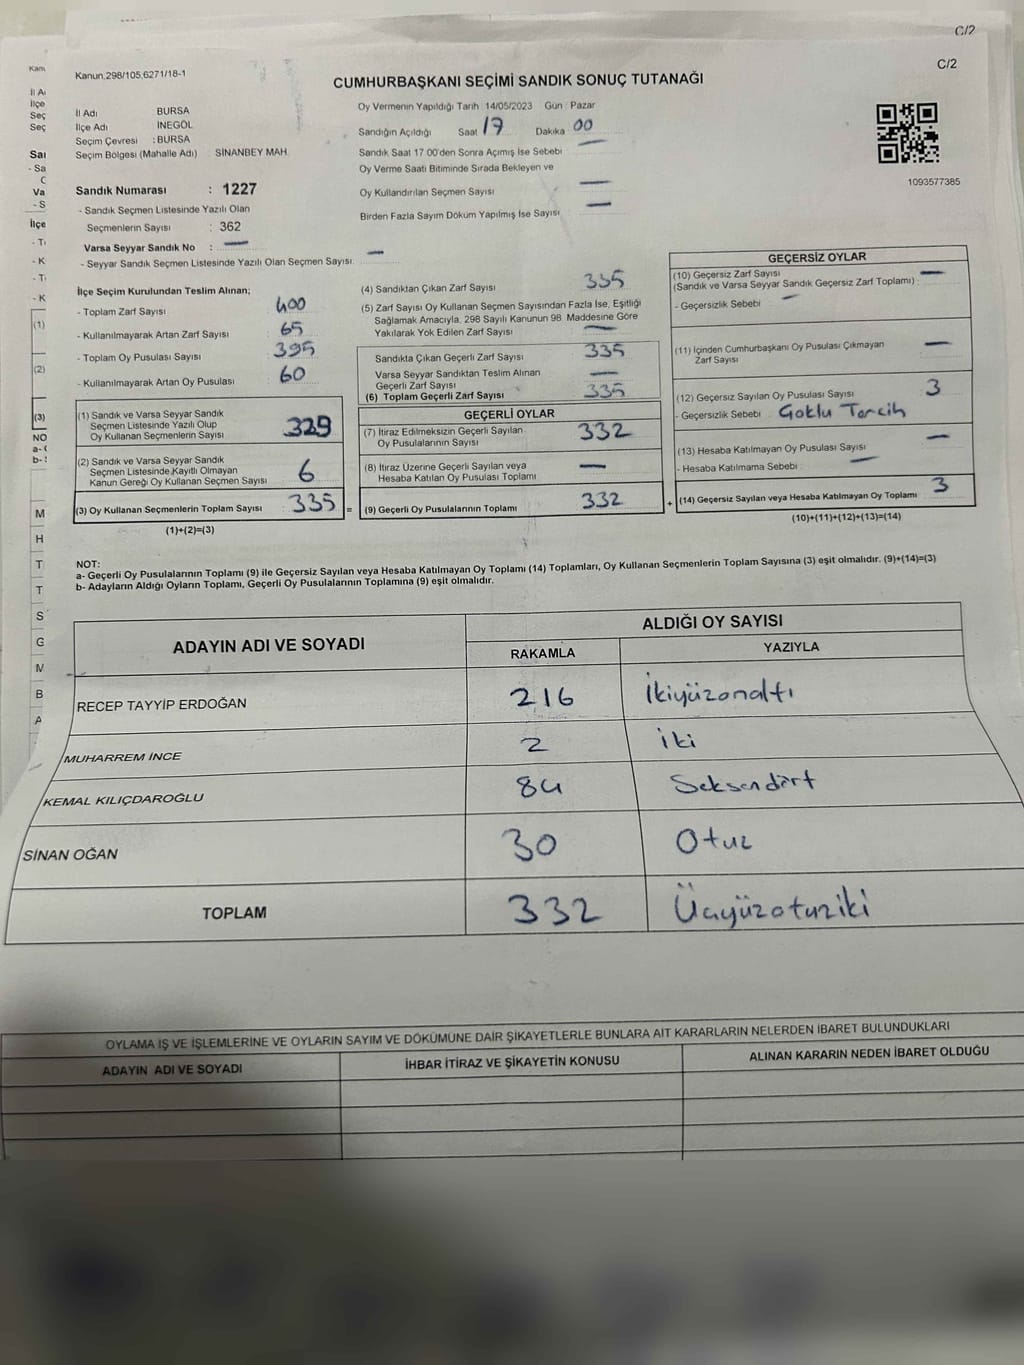 C/2
C/2
Kanun,298/105,6271/18-1
CUMHURBAŞKANI SEÇİMİ SANDIK SONUÇ TUTANAĞI
İl Adı BURSA
İlçe Adı INEGÖL
Seçim Çevresi : BURSA
Seçim Bölgesi (Mahalle Adı) SİNANBEY MAH.
Sandık Numarası : 1227
- Sandık Seçmen Listesinde Yazılı Olan
Seçmenlerin Sayısı : 362
Varsa Seyyar Sandık No : —
- Seyyar Sandık Seçmen Listesinde Yazılı Olan Seçmen Sayısı —
Oy Vermenin Yapıldığı Tarih :14/05/2023 Gün : Pazar
Sandığın Açıldığı Saat 17 Dakika 00
Sandık Saat 17.00'den Sonra Açımış İse Sebebi —
Oy Verme Saati Bitiminde Sırada Bekleyen ve
Oy Kullandırılan Seçmen Sayısı —
Birden Fazla Sayım Döküm Yapılmış İse Sayısı —
1093577385
İlçe Seçim Kurulundan Teslim Alınan;
- Toplam Zarf Sayısı 400
- Kullanılmayarak Artan Zarf Sayısı 65
- Toplam Oy Pusulası Sayısı 395
- Kullanılmayarak Artan Oy Pusulası 60
(1) Sandık ve Varsa Seyyar Sandık
Seçmen Listesinde Yazılı Olup
Oy Kullanan Seçmenlerin Sayısı 329
(2) Sandık ve Varsa Seyyar Sandık
Seçmen Listesinde Kayıtlı Olmayan
Kanun Gereği Oy Kullanan Seçmen Sayısı 6
(3) Oy Kullanan Seçmenlerin Toplam Sayısı 335 =
(1)+(2)=(3)
(4) Sandıktan Çıkan Zarf Sayısı 335
(5) Zarf Sayısı Oy Kullanan Seçmen Sayısından Fazla İse, Eşitliği
Sağlamak Amacıyla, 298 Sayılı Kanunun 98. Maddesine Göre
Yakılarak Yok Edilen Zarf Sayısı —
Sandıkta Çıkan Geçerli Zarf Sayısı 335
Varsa Seyyar Sandıktan Teslim Alınan
Geçerli Zarf Sayısı —
(6) Toplam Geçerli Zarf Sayısı 335
GEÇERLİ OYLAR
(7) İtiraz Edilmeksizin Geçerli Sayılan
Oy Pusulalarının Sayısı 332
(8) İtiraz Üzerine Geçerli Sayılan veya
Hesaba Katılan Oy Pusulası Toplamı —
(9) Geçerli Oy Pusulalarının Toplamı 332 +
GEÇERSİZ OYLAR
(10) Geçersiz Zarf Sayısı —
(Sandık ve Varsa Seyyar Sandık Geçersiz Zarf Toplamı) :
- Geçersizlik Sebebi —
(11) İçinden Cumhurbaşkanı Oy Pusulası Çıkmayan —
Zarf Sayısı
(12) Geçersiz Sayılan Oy Pusulası Sayısı 3
- Geçersizlik Sebebi Çoklu Tercih
(13) Hesaba Katılmayan Oy Pusulası Sayısı —
- Hesaba Katılmama Sebebi —
(14) Geçersiz Sayılan veya Hesaba Katılmayan Oy Toplamı 3
(10)+(11)+(12)+(13)=(14)
NOT:
a- Geçerli Oy Pusulalarının Toplamı (9) ile Geçersiz Sayılan veya Hesaba Katılmayan Oy Toplamı (14) Toplamları, Oy Kullanan Seçmenlerin Toplam Sayısına (3) eşit olmalıdır. (9)+(14)=(3)
b- Adayların Aldığı Oyların Toplamı, Geçerli Oy Pusulalarının Toplamına (9) eşit olmalıdır.
ADAYIN ADI VE SOYADI ALDIĞI OY SAYISI
RAKAMLA YAZIYLA
RECEP TAYYİP ERDOĞAN 216 İkiyüzonaltı
MUHARREM İNCE 2 iki
KEMAL KILIÇDAROĞLU 84 Seksendört
SİNAN OĞAN 30 Otuz
TOPLAM 332 Üçyüzotuziki
OYLAMA İŞ VE İŞLEMLERİNE VE OYLARIN SAYIM VE DÖKÜMÜNE DAİR ŞİKAYETLERLE BUNLARA AİT KARARLARIN NELERDEN İBARET BULUNDUKLARI
ADAYIN ADI VE SOYADI İHBAR İTİRAZ VE ŞİKAYETİN KONUSU ALINAN KARARIN NEDEN İBARET OLDUĞU